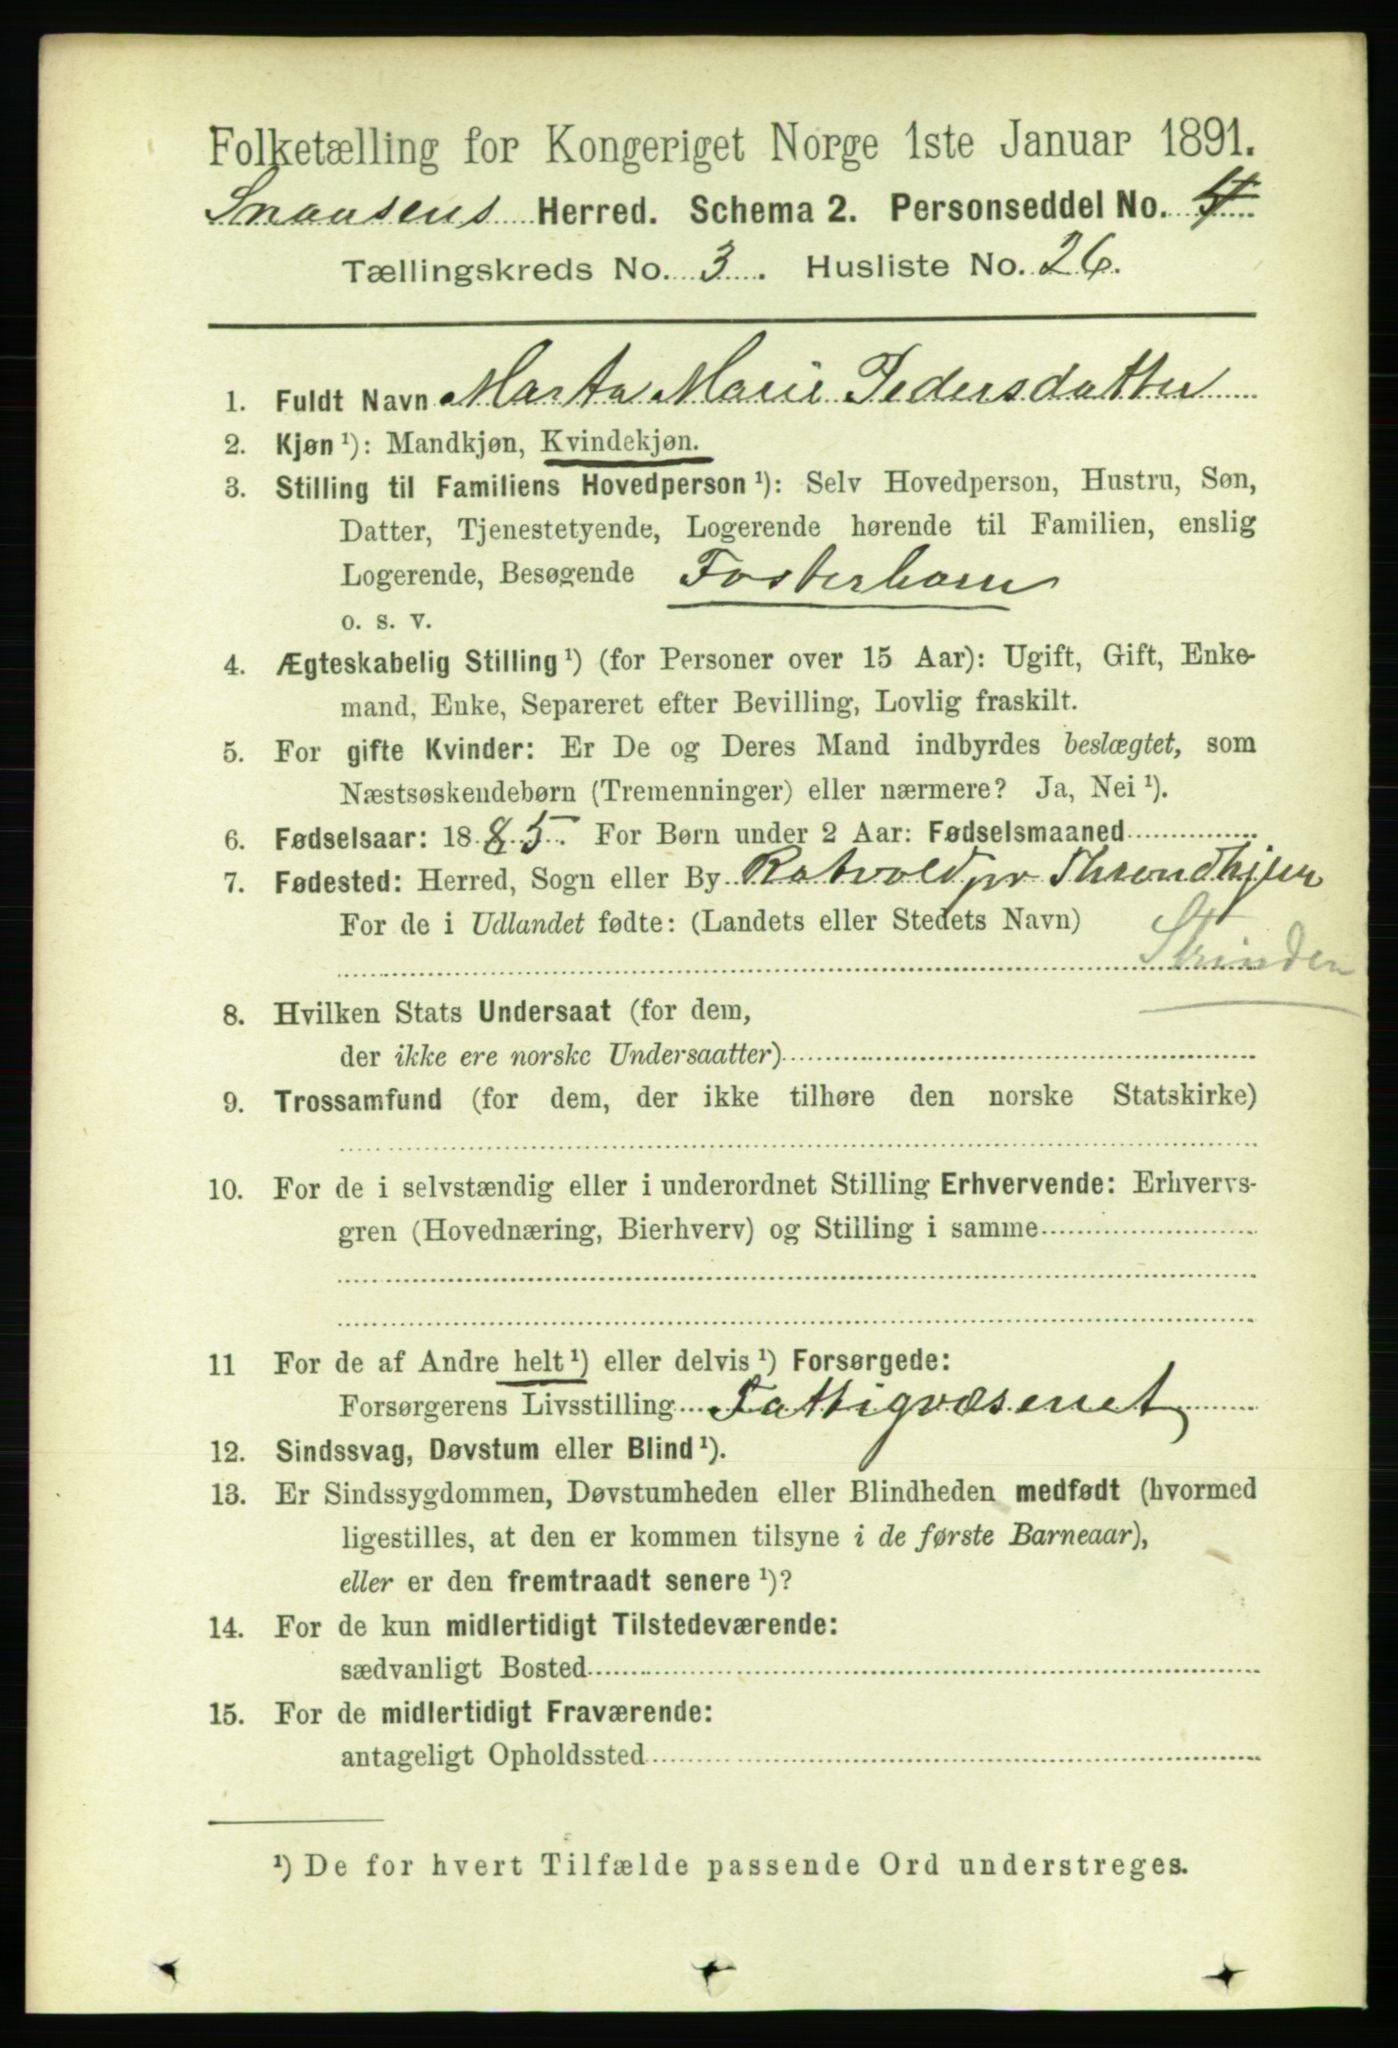 Folketælling for Kongeriget Norge 1ste Januar 1891.
Snaasens Herred. Schema 2. Personseddel No.
Tællingskreds No. 3. Husliste No. 26.
1. Fuldt Navn Marta Marie Pedersdatter
2. Kjøn ¹): Mandkjøn, Kvindekjøn.
3. Stilling til Familiens Hovedperson ¹): Selv Hovedperson, Hustru, Søn,
Datter, Tjenestetyende, Logerende hørende til Familien, enslig
Logerende, Besøgende Fosterbarn
o. s. v.
4. Ægteskabelig Stilling ¹) (for Personer over 15 Aar): Ugift, Gift, Enke-
mand, Enke, Separeret efter Bevilling, Lovlig fraskilt.
5. For gifte Kvinder: Er De og Deres Mand indbyrdes beslægtet, som
Næstsøskendebørn (Tremenninger) eller nærmere? Ja, Nei ¹).
6. Fødselsaar: 1885. For Børn under 2 Aar: Fødselsmaaned
7. Fødested: Herred, Sogn eller By Rotvold pr Throndhjem
For de i Udlandet fødte: (Landets eller Stedets Navn)
Strinden
8. Hvilken Stats Undersaat (for dem,
der ikke ere norske Undersaatter)
9. Trossamfund (for dem, der ikke tilhøre den norske Statskirke)
10. For de i selvstændig eller i underordnet Stilling Erhvervende: Erhvervs-
gren (Hovednæring, Bierhverv) og Stilling i samme
11 For de af Andre helt ¹) eller delvis ¹) Forsørgede:
Forsørgerens Livsstilling Fattigvæsenet
12. Sindssvag, Døvstum eller Blind ¹).
13. Er Sindssygdommen, Døvstumheden eller Blindheden medfødt (hvormed
ligestilles, at den er kommen tilsyne i de første Barneaar),
eller er den fremtraadt senere ¹)?
14. For de kun midlertidigt Tilstedeværende:
sædvanligt Bosted
15. For de midlertidigt Fraværende:
antageligt Opholdssted
¹) De for hvert Tilfælde passende Ord understreges.